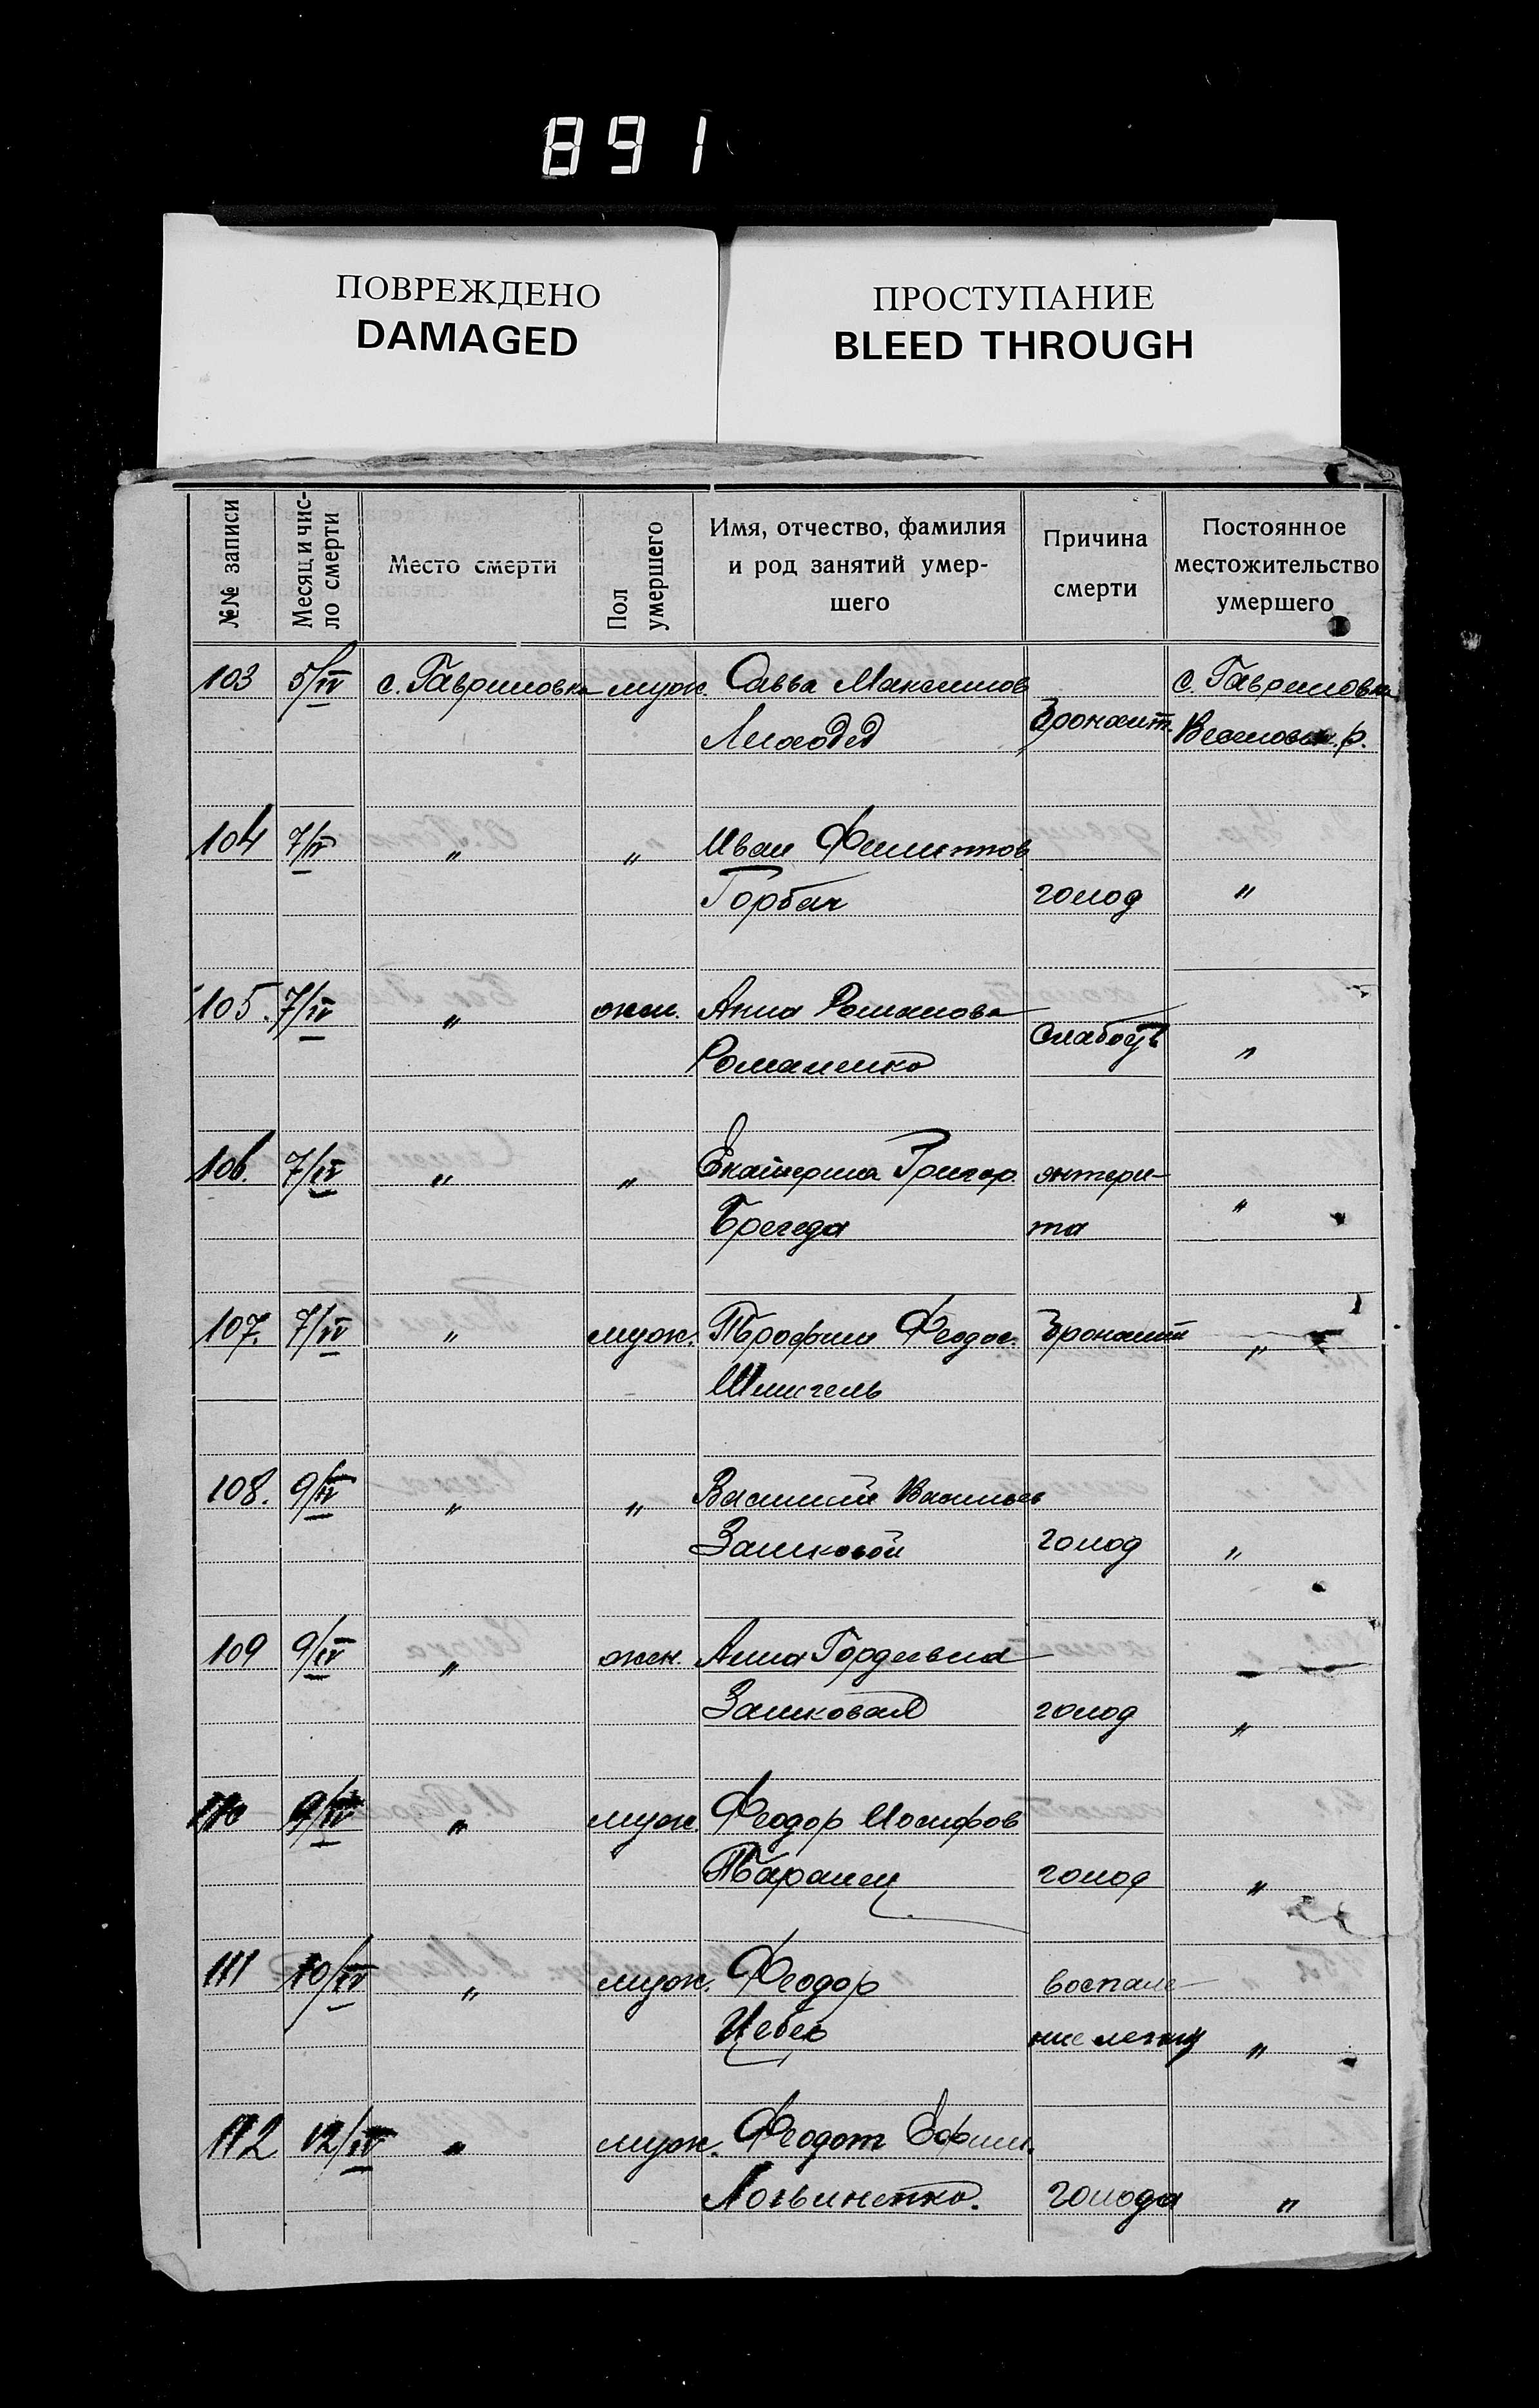 891
ПОВРЕЖДЕНО
DAMAGED
ПРОСТУПАНИЕ
BLEED THROUGH
№№ записи
Месяц и чис-
ло смерти
Место смерти
Пол
умершего
Имя, отчество, фамилия
и род занятий умер-
шего
Причина
смерти
Постоянное
местожительство
умершего
103 5/IV с. Гавриловка муж. Савва Максимов с. Гавриловка
Лиходед Бронхит. р.
104 7/IV " " Иван Филиппов
Горбач голод "
105. 7/IV " жен. Анна Романова
Романенко слабость "
106. 7/IV " " Екатерина Григор. энтери-
Брегеда та "
107. 7/IV " муж. Трофим Феодос. Бронхит "
Шпигель
108. 9/IV " " Василий Васильев
Зашковой голод "
109 9/IV " жен. Анна Гордеевна
Зашковая голод "
110 9/IV " муж. Феодор Иосифов
Таранец голод "
111 10/IV " муж. Феодор воспале-
ние легких "
112 12/IV " муж. Феодот Ефим.
Логвиненко. голода "